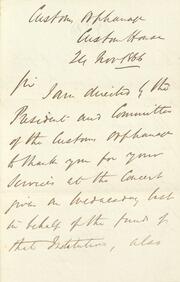 Customs Orphanage
Custom House
24 Nov 1866
Sir
I am directed by the
President and Committee
of the Customs Orphanage
to thank you for your
Services at the Concert
given on Wednesday last
in behalf of the funds of
that Institution, also